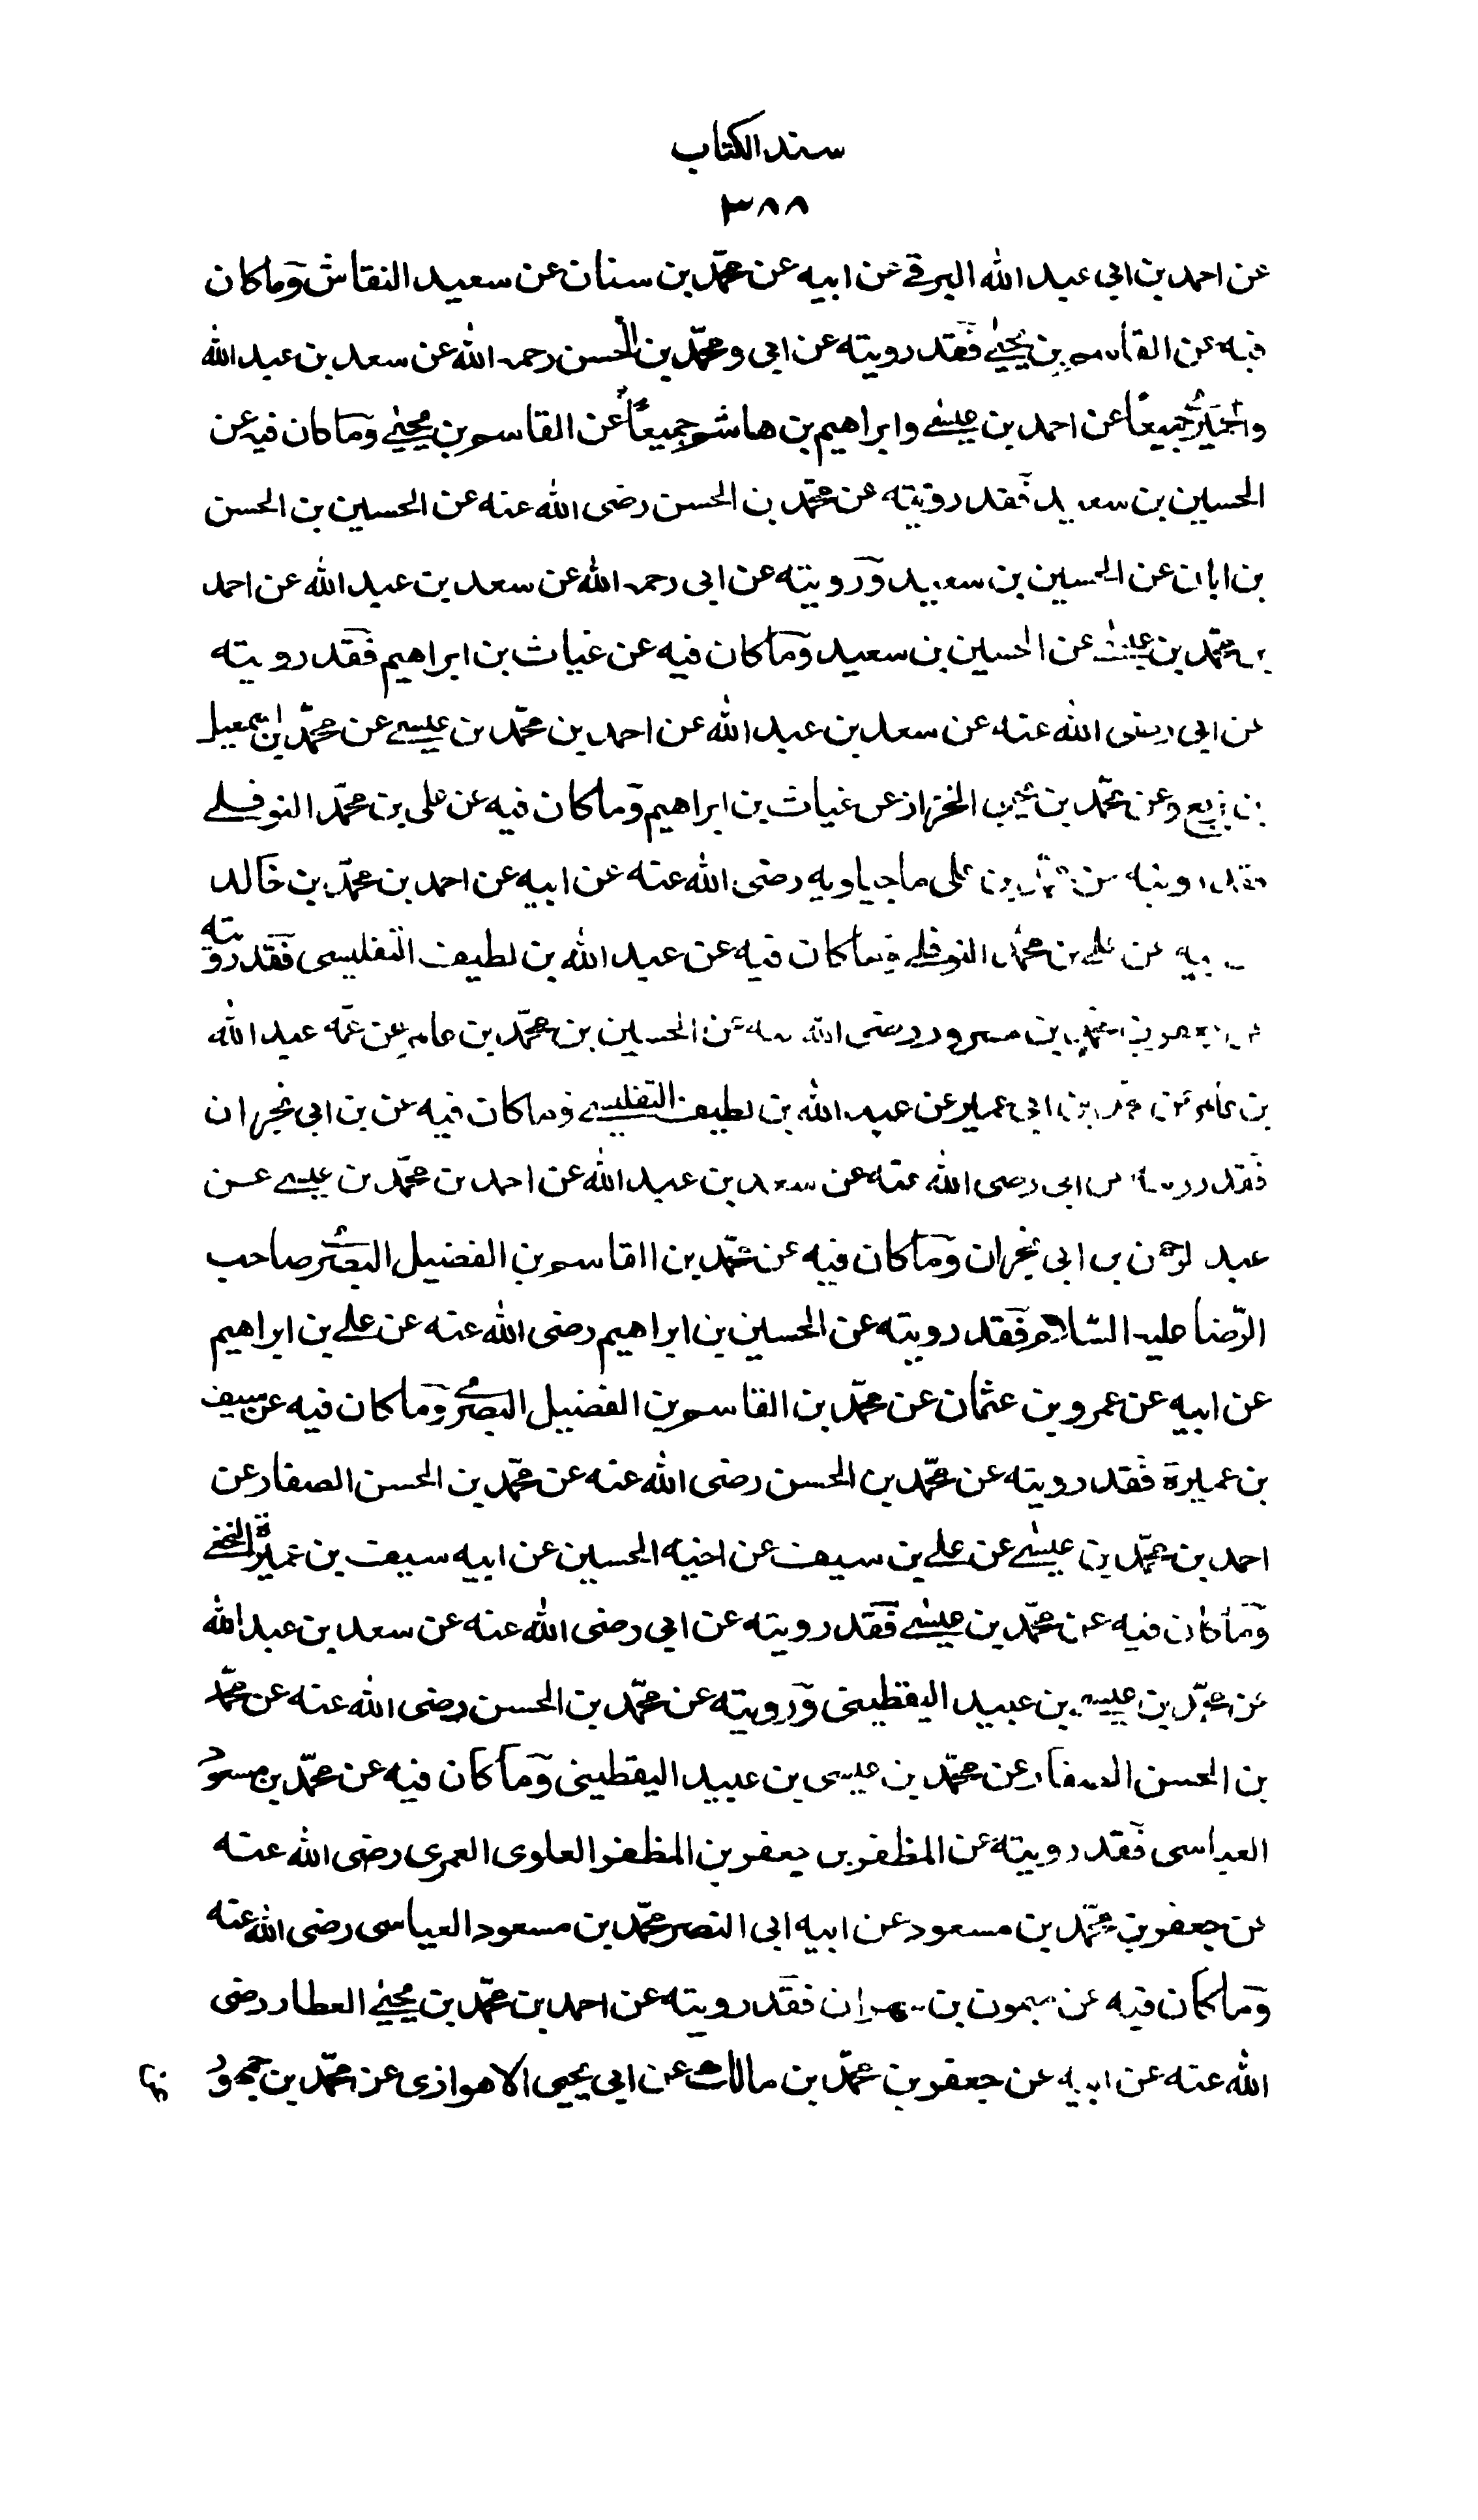 سند الكتاب
٣٨٨
عن احمد بن ابي عبد الله البرقے عن ابيه عن محمّد بن سنان عن سعيد النقاش وَما كان
فيه عن القاسم بن يحيٰے فقد رويته عن ابي ومحمّد بن الحسن رحمه الله عن سعد بن عبد الله
والحميَرُّ جميعًا عن احمد بن عيسٰے وابراهيم بن هاشم جميعًا عن القاسم بن يحيٰے وَما كان فيه عن
الحسين بن سعيد فقد رويته عن محمّد بن الحسن رضى الله عنه عن الحسين بن الحسن
بن ابان عن الحسين بن سعيد وَرويته عن ابى رحمه الله عن سعد بن عبد الله عن احمد
بن محمّد بن عيسٰے عن الحسين بن سعيد وَما كان فيه عن غياث بن ابراهيم فَقد رويته
عن ابي رضى الله عنه عن سعد بن عبد الله عن احمد بن محمّد بن عيسے عن محمّد بن اسمعيل
بن بزيع وعن محمّد بن يحيى الخزاز عن غياث بن ابراهيم وَما كان فيه عن على بن محمّد النوفلے
فقد رويته عن محمّد بن على ماجيلويه رضى الله عنه عن ابيه عن احمد بن محمّد بن خالد
ـ بيه عن علے بن محمّد النوفلے وما كان فيه عن عبد الله بن لطيف التفليسى فَقد رويته
عن جعفر بن محمّد بن مسرور رضى الله عنه عن الحسين بن محمّد بن عامر عن عمّه عبد الله
بن عامر عن محمد بن ابي عمير عن عبد الله بن لطيف التفليسے وما كان فيه عن بن ابى نجران
فَقد رويته عن ابى رضى الله عنه عن سعد بن عبد الله عن احمد بن محمّد بن عيسے عن
عبد الرحمن بن ابى نجران وَما كان فيه عن محمّد بن القاسم بن الفضيل البصرے صاحب
الرّضا عليه السّلام فَقد رويته عن الحسين بن ابراهيم رضى الله عنه عن علے بن ابراهيم
عن ابيه عن عمرو بن عثمان عن محمّد بن القاسم بن الفضيل البصرے وَما كان فيه عن سيف
بن عميرة فَقد رويته عن محمّد بن الحسن رضى الله عنه عن محمّد بن الحسن الصفار عن
احمد بن محمّد بن عيسٰے عن علے بن سيف عن اخيه الحسين عن ابيه سيف بن عميرة النخعے
وَما كان فيه عن محمّد بن عيسٰے فَقد رويته عن ابي رضى الله عنه عن سعد بن عبد الله
عن محمّد بن عيسے بن عبيد اليقطينى وَرويته عن محمّد بن الحسن رضى الله عنه عن محمّد
بن الحسن الصفار عن محمّد بن عيسى بن عبيد اليقطينى وَما كان فيه عن محمّد بن مسعود
العياسى فَقد رويته عن المظفر بن جعفر بن المظفر العلوى العمرى رضى الله عنه
عن جعفر بن محمّد بن مسعود عن ابيه ابى النصر محمّد بن مسعود العياسى رضى الله عنه
وَما كان فيه عن ميمون بن مهران فقَد رويته عن احمد بن محمّد بن يحيٰے العطار رضى
الله عنه عن ابيه عن جعفر بن محمّد بن مالك عن ابي يحيى الاهوازى عن محمّد بن جمهور